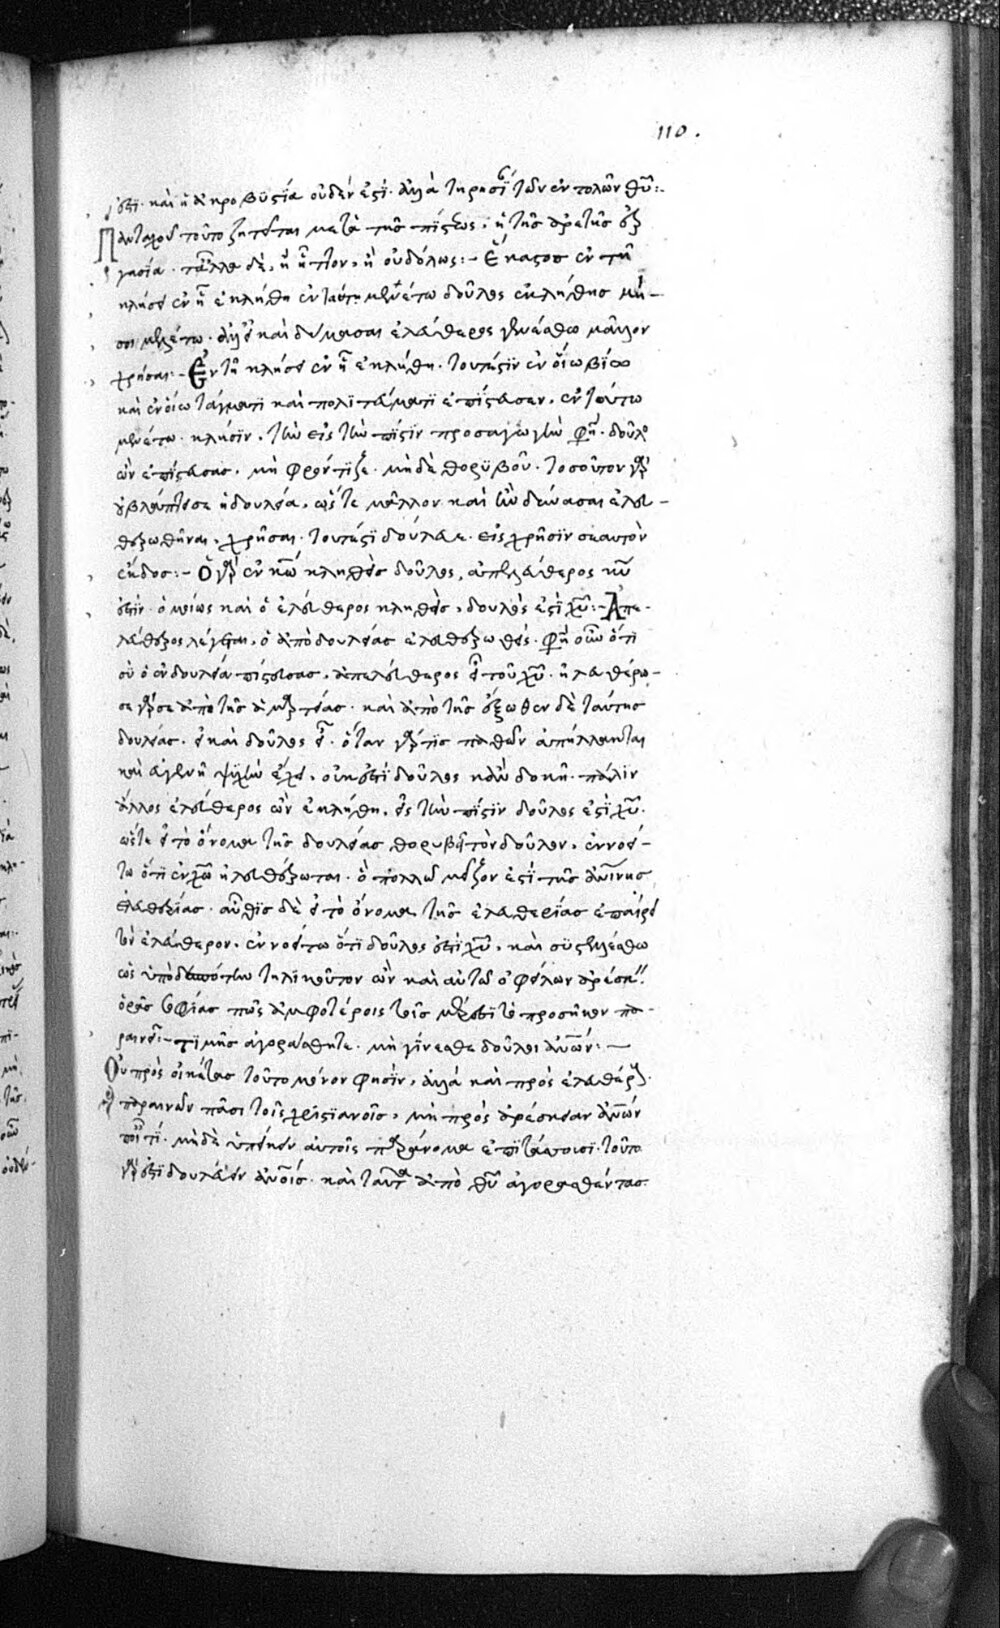 110.
ἐστὶ. καὶ ἡ ἀκροβυστία οὐδέν ἐστι. ἀλλὰ τήρησις τῶν ἐντολῶν θῦ:-
Πανταχοῦ τοῦτο ζητεῖται μετὰ τῆς πίστεως, ἡ τῆς ἀρετῆς ἐρ
γασία. τἄλλα δὲ, ἢ ἧττον, ἢ οὐδόλως:- Ἕκαστος ἐν τῇ
κλήσει ἐν ᾗ ἐκλήθη ἐν ταύτῃ μενέτω δοῦλος ἐκλήθης μή
σοι μελέτω. ἀλλ' εἰ καὶ δύνασαι ἐλεύθερος γενέσθαι μᾶλλον
χρῆσαι:- Ἐν τῇ κλήσει ἐν ᾗ ἐκλήθη. τουτέστιν ἐν οἵω βίω
καὶ ἐν οἵω τάγματι καὶ πολιτεύματι ἐπίστευσεν, ἐν τούτω
μενέτω. κλῆσιν, τὴν εἰς τὴν πίστιν προσαγωγὴν φησὶ. δοῦλος
ὢν ἐπίστευσας, μὴ φρόντιζε. μὴ δὲ θορυβοῦ. τοσοῦτον γὰρ
οὐ βλάπτει σε ἡ δουλεία, ὥστε μᾶλλον καὶ ἂν δύνασαι ἐλευ-
θερωθῆναι, χρῆσαι. τουτέστι δούλευε. εἰς χρῆσιν σεαυτὸν
ἔκδος:- Ὁ γὰρ ἐν κῶ κληθεὶς δοῦλος, ἀπελεύθερος κῦ
ἐστίν. ὁμοίως καὶ ὁ ἐλεύθερος κληθεὶς, δοῦλός ἐστι χῦ:- Ἀπε-
λεύθερος λέγεται, ὁ ἀπὸ δουλείας ἐλευθερωθείς. φησὶ οὖν ὅτι
σὺ ὁ ἐν δουλεία πιστεύσας, ἀπελεύθερος εἶ τοῦ χῦ. ἠλευθέρω-
σε γάρ σε ἀπὸ τῆς ἁμαρτίας. καὶ ἀπὸ τῆς ἔξωθεν δὲ ταύτης
δουλείας. εἰ καὶ δοῦλος εἶ. ὅταν γάρ τις παθῶν ἀπήλλακται
καὶ εὐγενῆ ψυχὴν ἔχει, οὐκ ἔστι δοῦλος κἂν δοκῇ. πάλιν
ἄλλος ἐλεύθερος ὢν ἐκλήθη, εἰς τὴν πίστιν δοῦλος ἐστὶ χῦ.
ὥστε εἰ τὸ ὄνομα τῆς δουλείας θορυβεῖ τὸν δοῦλον, ἐννοεί-
τω ὅτι ἐν χῶ ἠλευθέρωται. ὃ πολλῶ μεῖζον ἐστὶ τῆς ἀνίνης
ἐλευθερίας. αὖθις δὲ εἰ τὸ ὄνομα τῆς ἐλευθερίας ἐπαίρει
τὸν ἐλεύθερον. ἐννοείτω ὅτι δοῦλος ἐστὶ χῦ, καὶ συστελέσθω
ὡς ὑπὸ δεσπότην τηλικοῦτον ὢν καὶ αὐτῶ ὀφείλων ἀρέσκειν
ὁρᾶς σοφίας πῶς ἀμφοτέροις τοῖς μέρεσι τὸ προσῆκον πα-
ραινεῖ:- τιμῆς ἠγοράσθητε. μὴ γίνεσθε δοῦλοι ἀνῶν:-
Οὐ πρὸς οἰκέτας τοῦτο μόνον φησίν, ἀλλὰ καὶ πρὸς ἐλευθέρους.
παραινῶν πᾶσι τοῖς χριστιανοῖς, μὴ πρὸς ἀρέσκειαν ἀνῶν
ποιεῖν τι. μηδὲ ὑπείκειν αὐτοῖς παράνομα ἐπιτάττουσι. τοῦτο
γάρ ἐστι δουλεύειν ἀνοις. καὶ ταῦτα ἀπὸ θῦ ἀγορασθέντας.